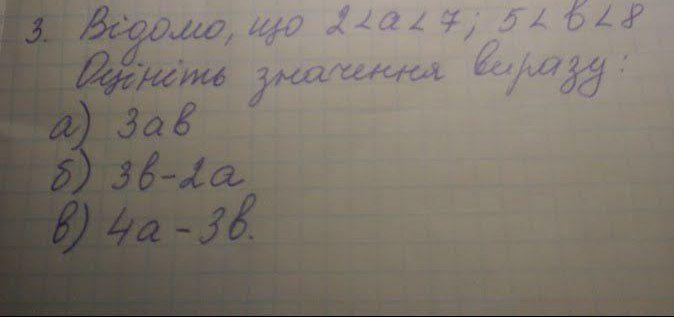 3. Відомо, що 2<a<7; 5<b<8
Оцініть значення виразу:
а) 3ab
б) 3b-2a
в) 4a-3b.